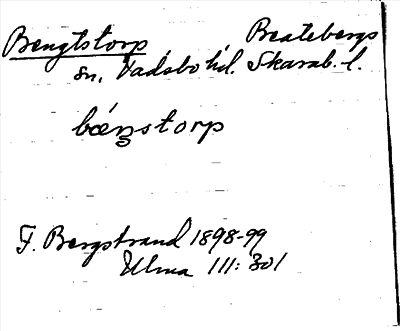 Bengtstorp Beatebergs
sn, Vadsbo hd. Skarab. l.
bœ́ŋstorp
F. Bergstrand 1898-99
Ulma 111: 301